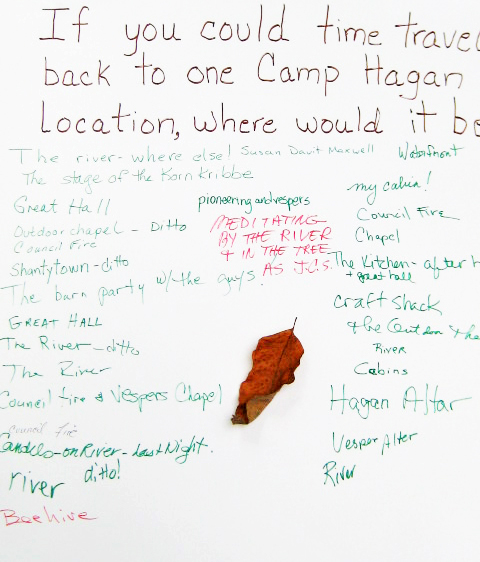 If you could time trave
back to one Camp Hagan
Location, where would it be
The river - where else! Susan Davit Maxwell
The stage of the Korn Kribbe
Great Hall
Outdoor chapel - Ditto
Council Fire
Shantytown - ditto
The barn party w/ the guys!
GREAT HALL
The River - ditto
The River
Council fire & Vespers Chapel
Council Fire
Candles - on River - Last Night.
river ditto!
Beehive
pioneering and vespers
MEDITATING
BY THE RIVER
& IN THE TREE
AS J.C.S.
Waterfront
my cabin!
Council Fire
Chapel
The Kitchen - after h
& great hall
craft shack
& the Outdoor & the
River
Cabins
Hagan Altar
Vesper Alter
River